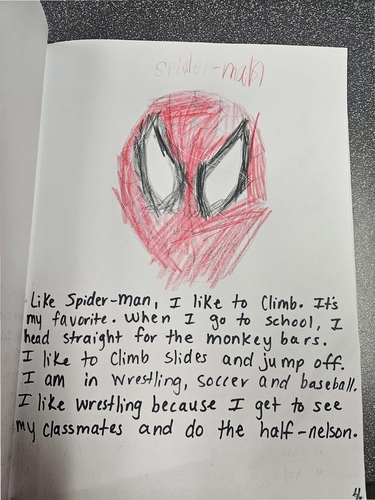 spider-man
Like Spider-man, I like to Climb. It's
my favorite. When I go to school, I
head straight for the monkey bars.
I like to Climb slides and jump off.
I am in wrestling, soccer and baseball.
I like wrestling because I get to see
my classmates and do the half-nelson.
4.